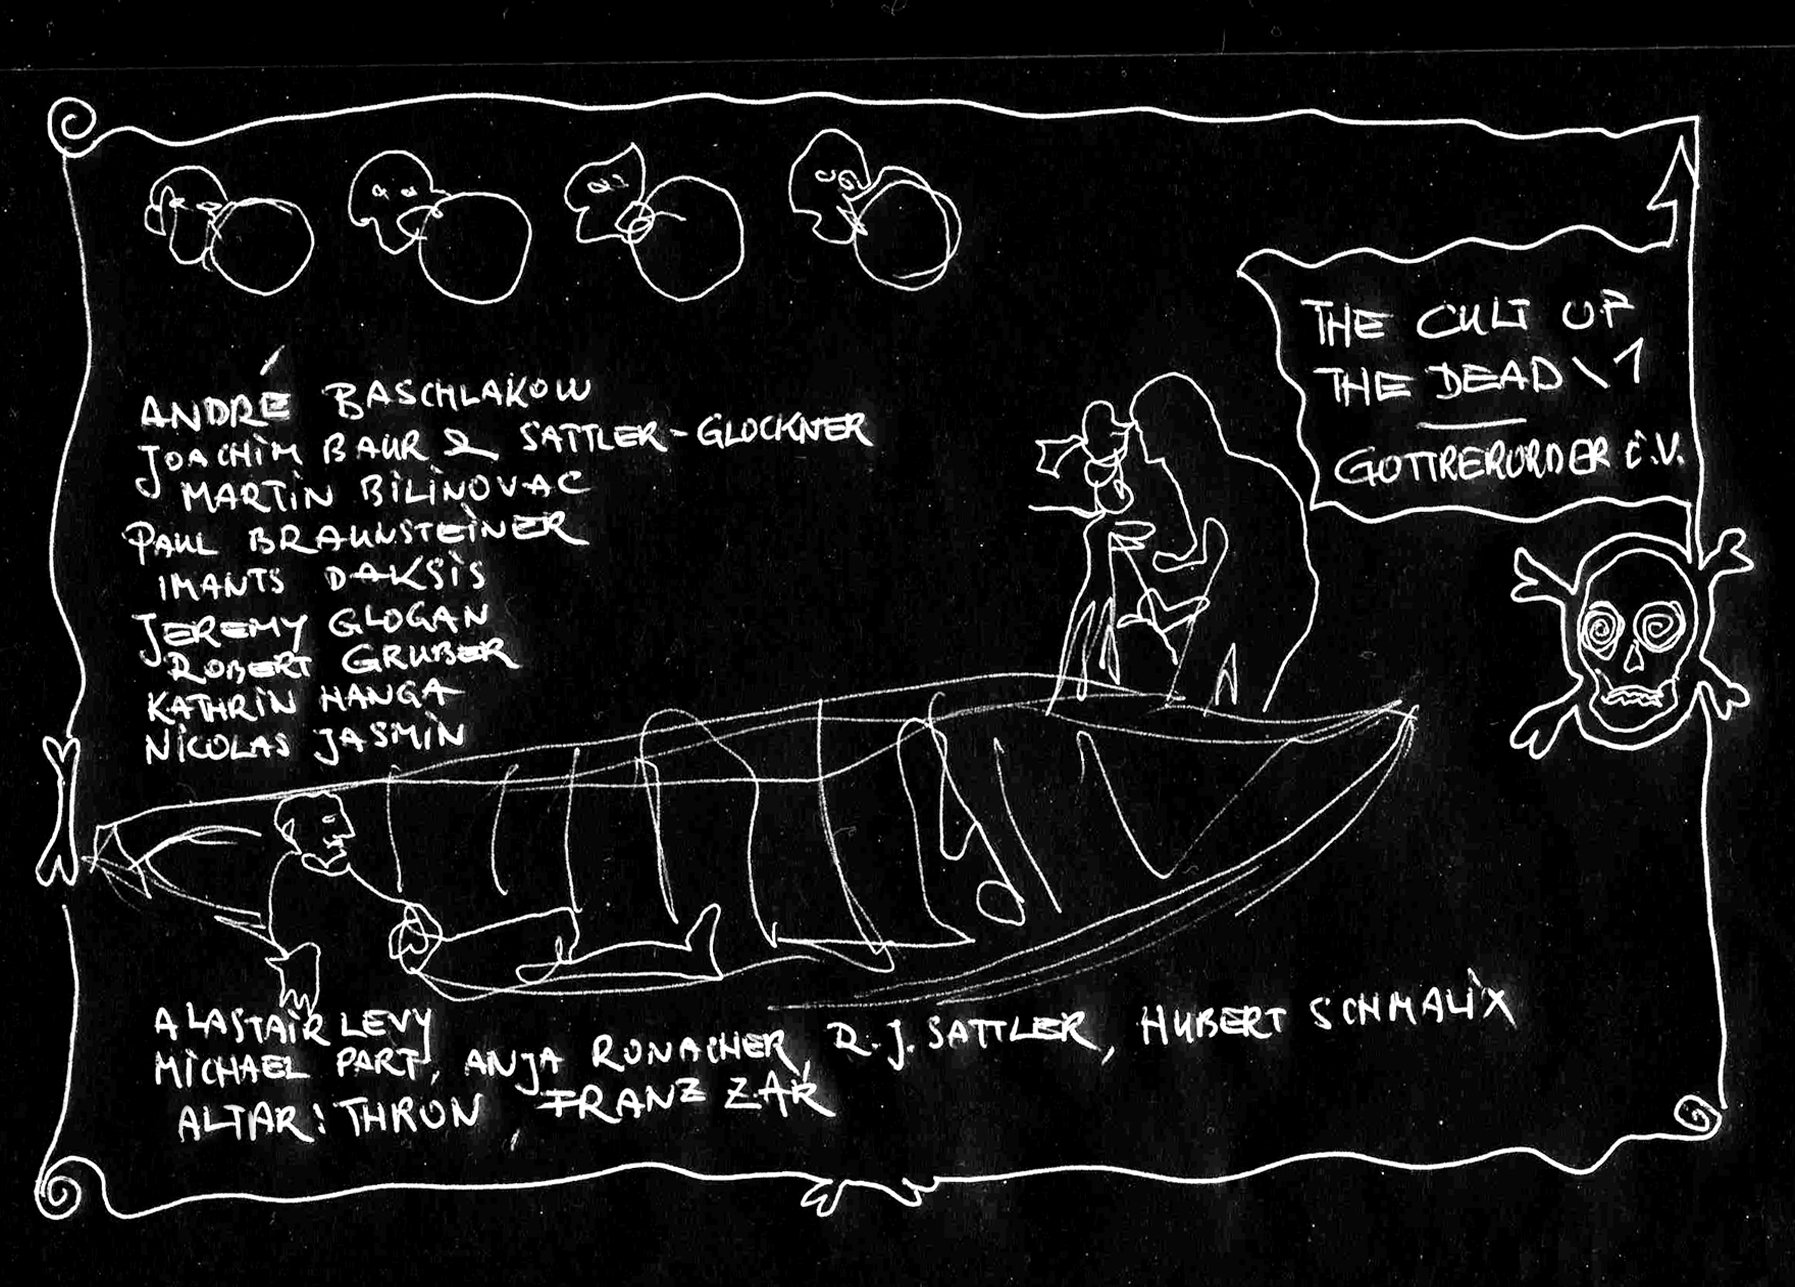 ANDRÉ BASCHLAKOW
JOACHIM BAUR & SATTLER-GLOCKNER
MARTIN BILINOVAC
PAUL BRAUNSTEINER
IMANTS DAKSIS
JEREMY GLOGAN
ROBERT GRUBER
KATHRIN HANGA
NICOLAS JASMIN
THE CULT OF
THE DEAD \ 1
GOTTRERORDER E.V.
ALASTAIR LEVY
MICHAEL PART, ANJA RONACHER, R.J. SATTLER, HUBERT SCHMALIX
ALTAR: THRON FRANZ ZAR